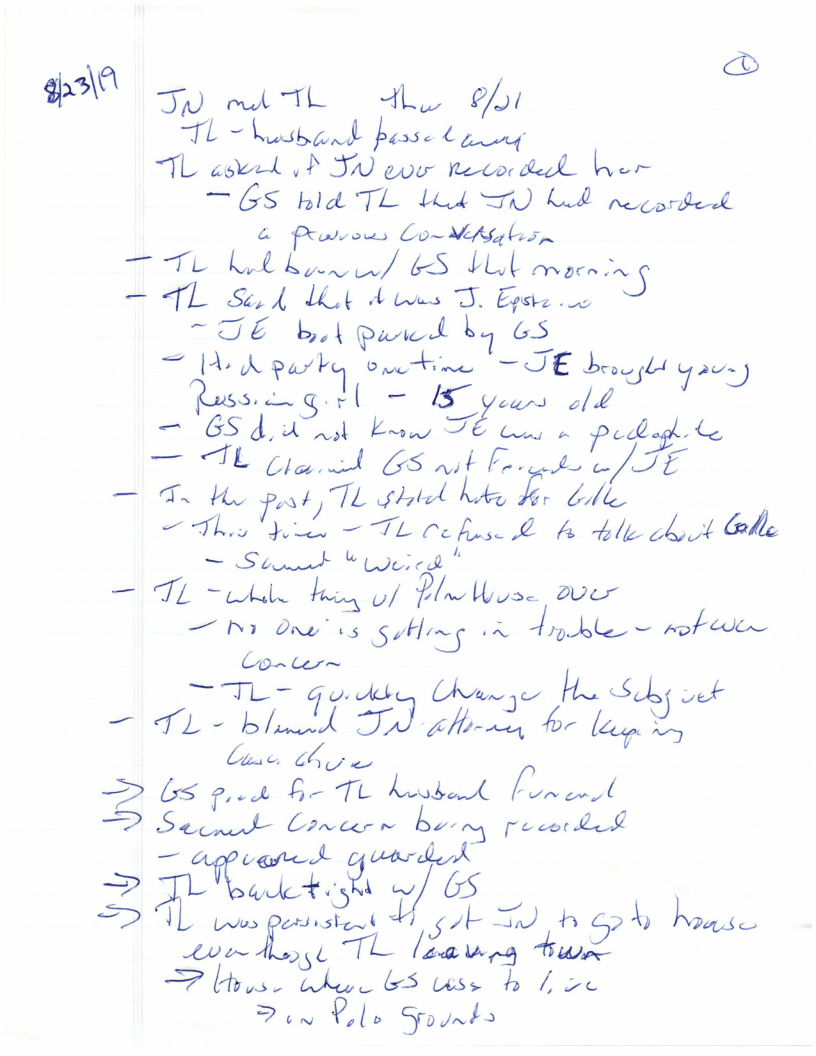 ①
8/23/19
JN met TL thur 8/21
TL - husband passed away
TL asked if JN ever recorded her
- GS told TL that JN had recorded
a previous conversation
- TL had been w/ GS that morning
- TL said that it was J. Epstein
- JE boat parked by GS
- Had party one time - JE brought young
Russian girl - 15 years old
- GS did not know JE was a pedophile
- TL claimed GS not friends w/ JE
- In the past, TL stated hate for
- This time - TL refused to talk about
- Seemed "weird"
- TL - whole thing w/ Palm House over
- No one is getting in trouble - not even
concern
- TL - quickly change the subject
- TL - blamed JN attorney for keeping
case alive
→ GS paid for TL husband funeral
→ Seemed concern being recorded
- appeared guarded
→ TL back tight w/ GS
→ TL was persistent to get JN to go to house
even though TL leaving town
→ House where GS uses to live
⇒ in Polo Grounds